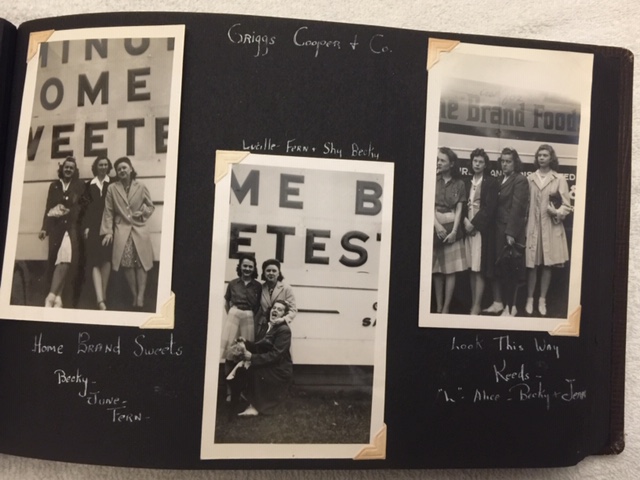 Griggs Cooper & Co.
OME
WEETE
Home Brand Sweets
Becky-
June-
Fern-
Lucille- Fern & Shy Becky
ME B
ETEST
e Brand Food
Look This Way
Keeds-
"L"- Alice- Becky & Jean